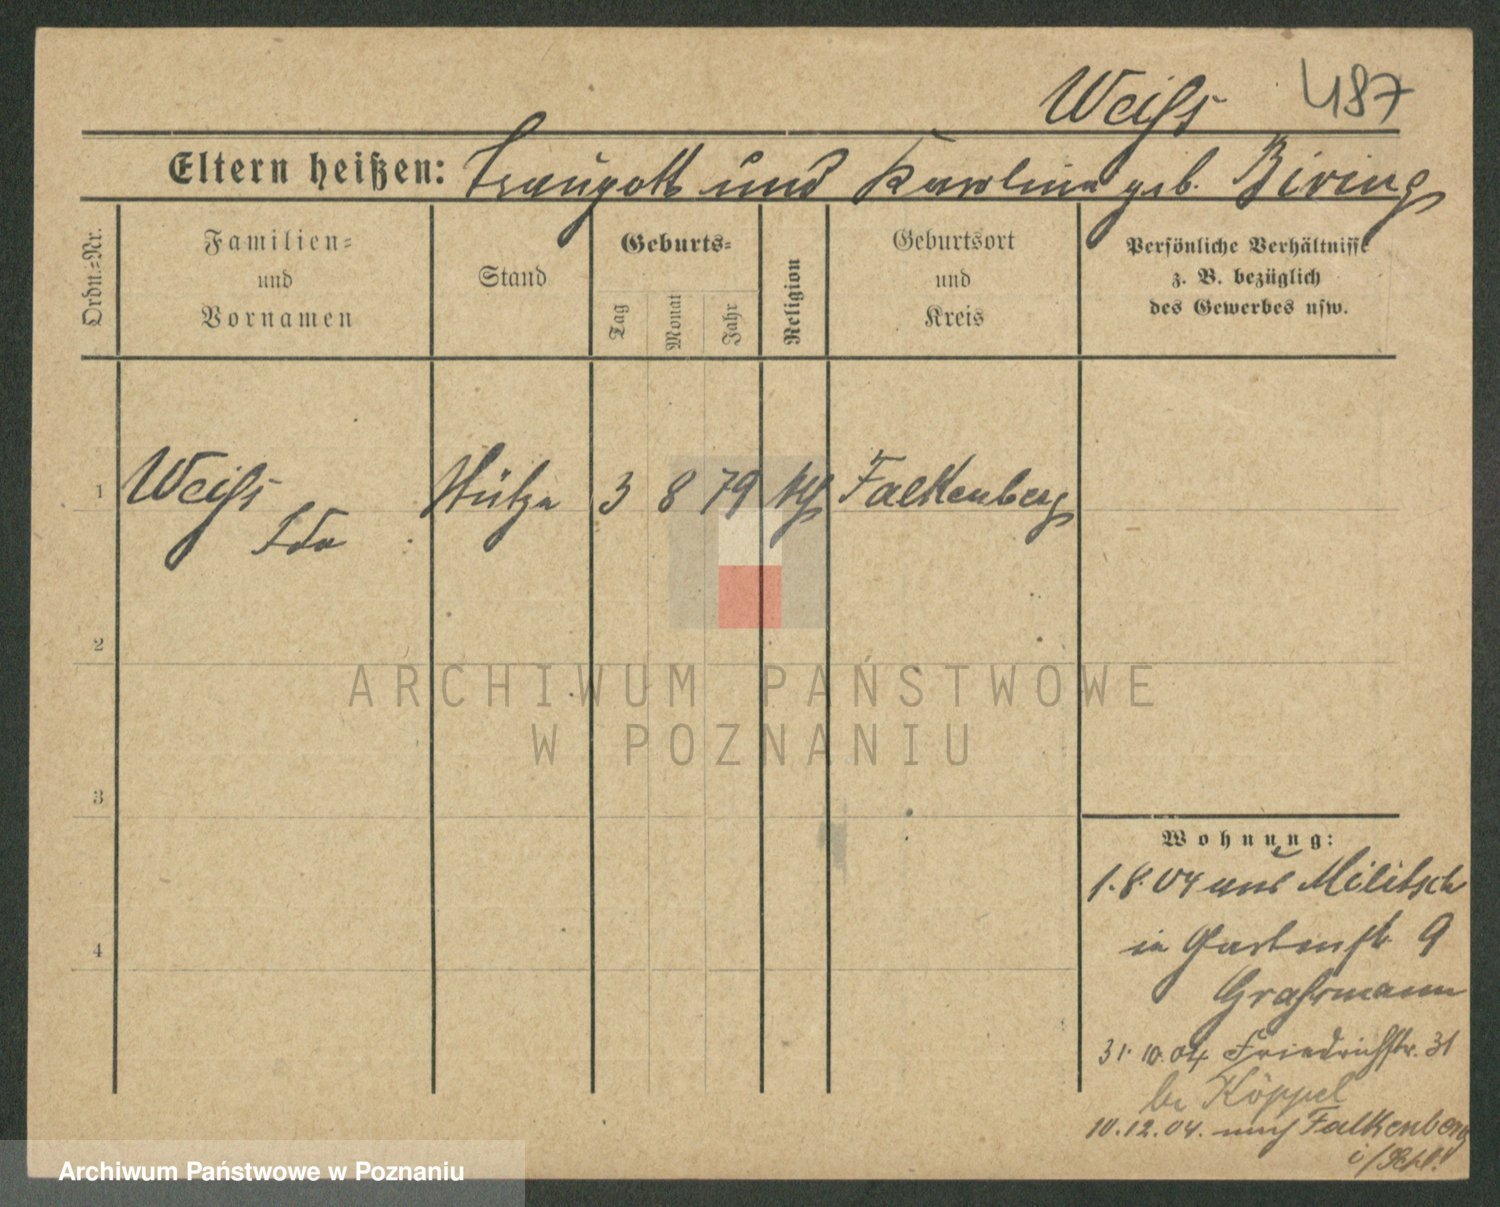 Weiss 487
Eltern heißen: Traugott und Karolina geb. Biring
Ordn.=Nr.
Familien=
und
Vornamen
Stand
Geburts=
Tag
Monat
Jahr
Religion
Geburtsort
und
Kreis
Persönliche Verhältnisse
z. B. bezüglich
des Gewerbes usw.
1 Weiss Stütze 3 8 79 Falkenberg
Ida
2
3
4
Wohnung:
1.8.04 aus Militsch
in Gartenstr 9
Grassmann
31.10.04 Friedrichstr. 31
bei Köppel
10.12.04. nach Falkenberg
i/Schl.
ARCHIWUM PAŃSTWOWE
W POZNANIU
Archiwum Państwowe w Poznaniu